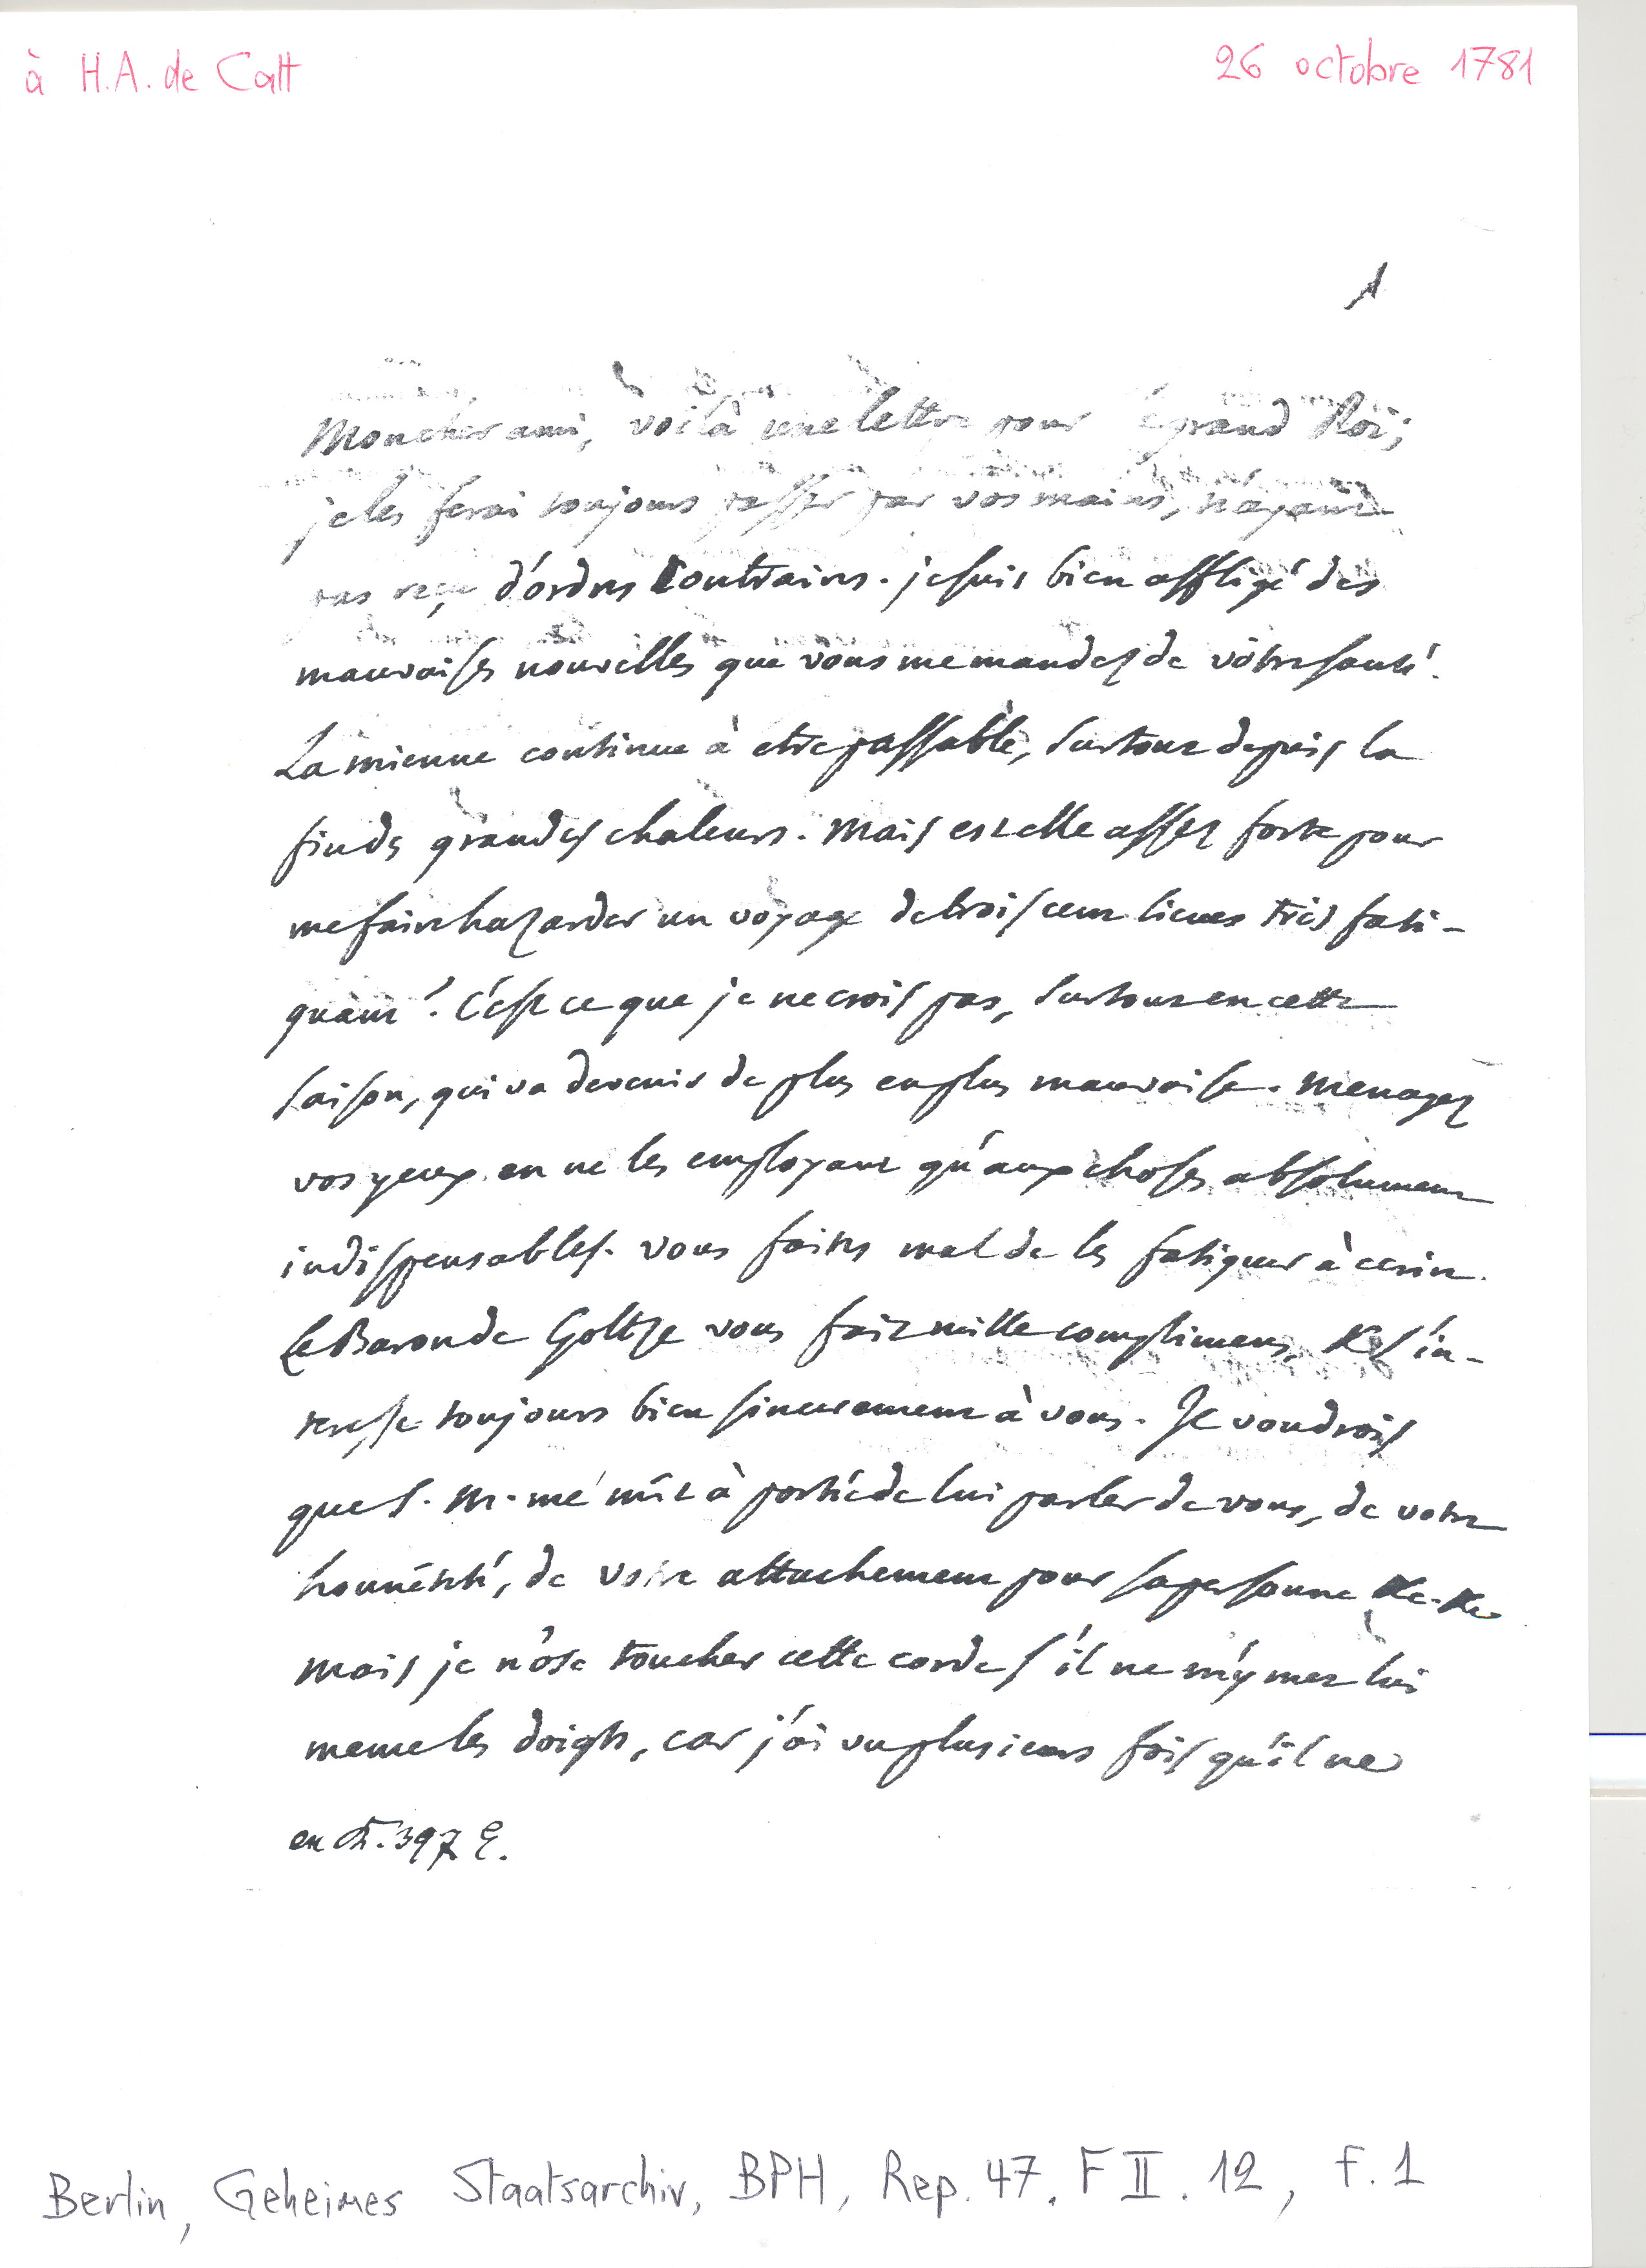 à H.A. de Catt
26 octobre 1781
1
Mon cher ami, voilà une lettre pour le grand Roi;
je les ferai toujours passer par vos mains, n'ayant
pas reçu d'ordres contraires. je suis bien affligé des
mauvaises nouvelles que vous me mandez de vôtre santé.
La mienne continue à etre passable, surtout depuis la
fin des grandes chaleurs. Mais est elle assez forte pour
me faire hazarder un voyage de trois cent lieues très fati-
guant? C'est ce que je ne crois pas, surtout en cette
saison, qui va devenir de plus en plus mauvaise. Menagez
vos yeux en ne les employant qu'aux choses absolument
indispensables. vous faites mal de les fatiguer à ecrire.
Le Baron de Goltze vous fait mille complimens, & s'in-
teresse toujours bien sincerement à vous. Je voudrois
que S. M. me mît à portée de lui parler de vous, de votre
honnêteté, de votre attachement pour sa personne &c. &c
Mais je n'ose toucher cette corde s'il ne m'y met lui
meme les doigts, car j'ai vu plusieurs fois qu'il ne
Berlin, Geheimes Staatsarchiv, BPH, Rep. 47. F II. 12, F. 1